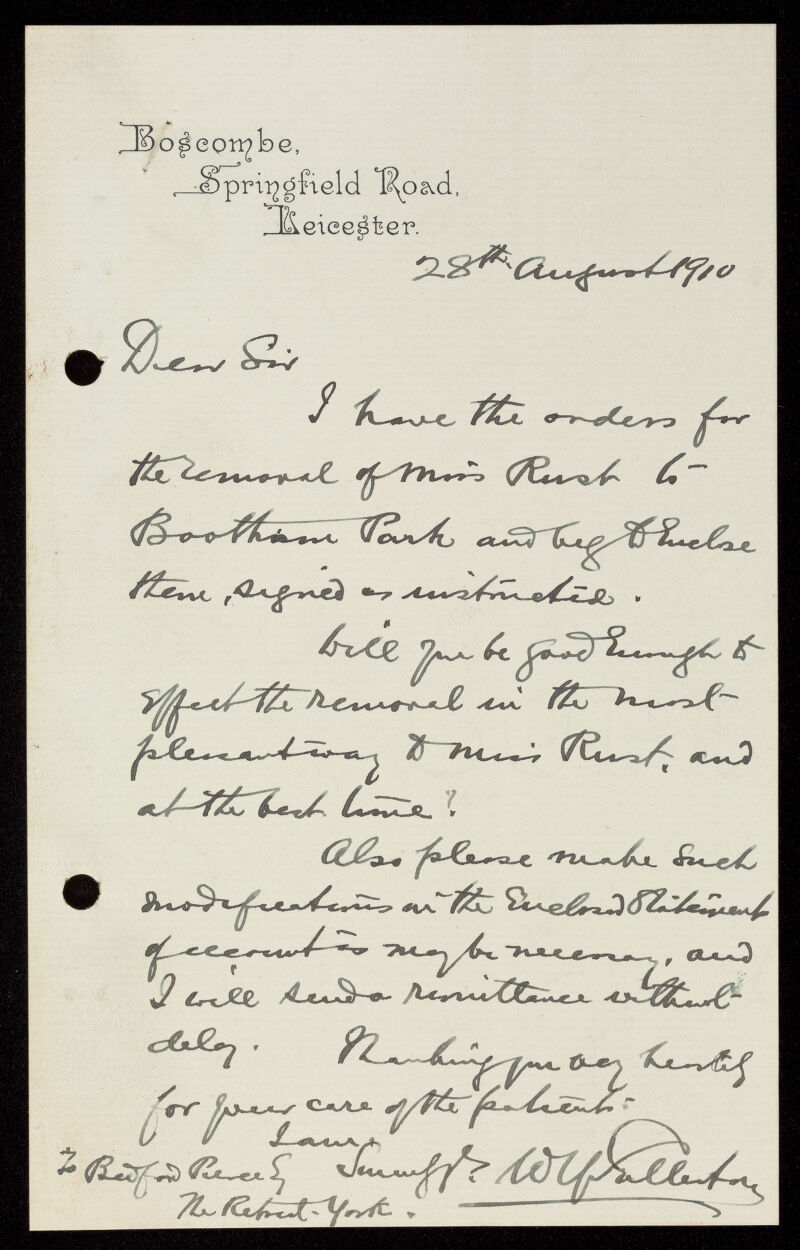 Boscombe,
Springfield Road,
Leicester.
28th August 1910
Dear Sir
I have the orders for
the removal of Miss Rust to
Bootham Park and beg to Enclose
them, signed as instructed.
Will you be good Enough to
Effect the removal in the most
pleasant way to Miss Rust, and
at the best time?
Also please make such
modifications in the Enclosed Statement
of account as may be necessary, and
I will send a remittance without
delay. Thanking you very heartily
for your care of the patient:
I am.
To Bedford Pierce Esq Fullerton
The Retreat - York.